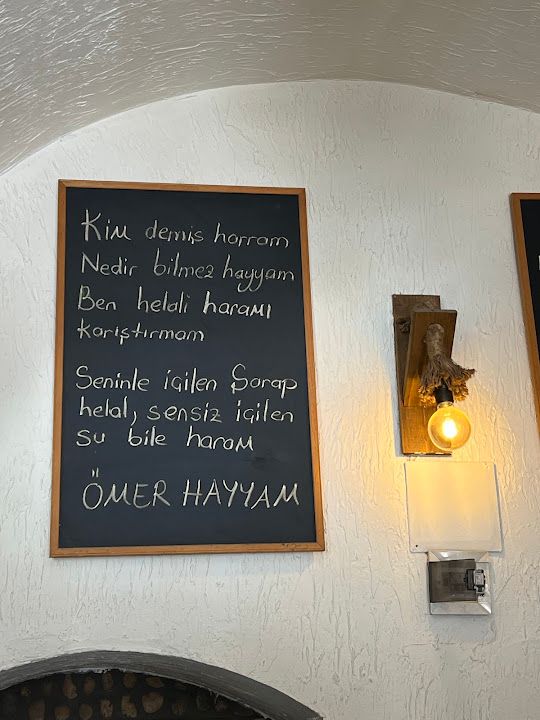 Kim demiş harram
Nedir bilmez hayyam
Ben helali haramı
karıştırmam
Seninle içilen Şarap
helal, sensiz içilen
su bile haram
ÖMER HAYYAM